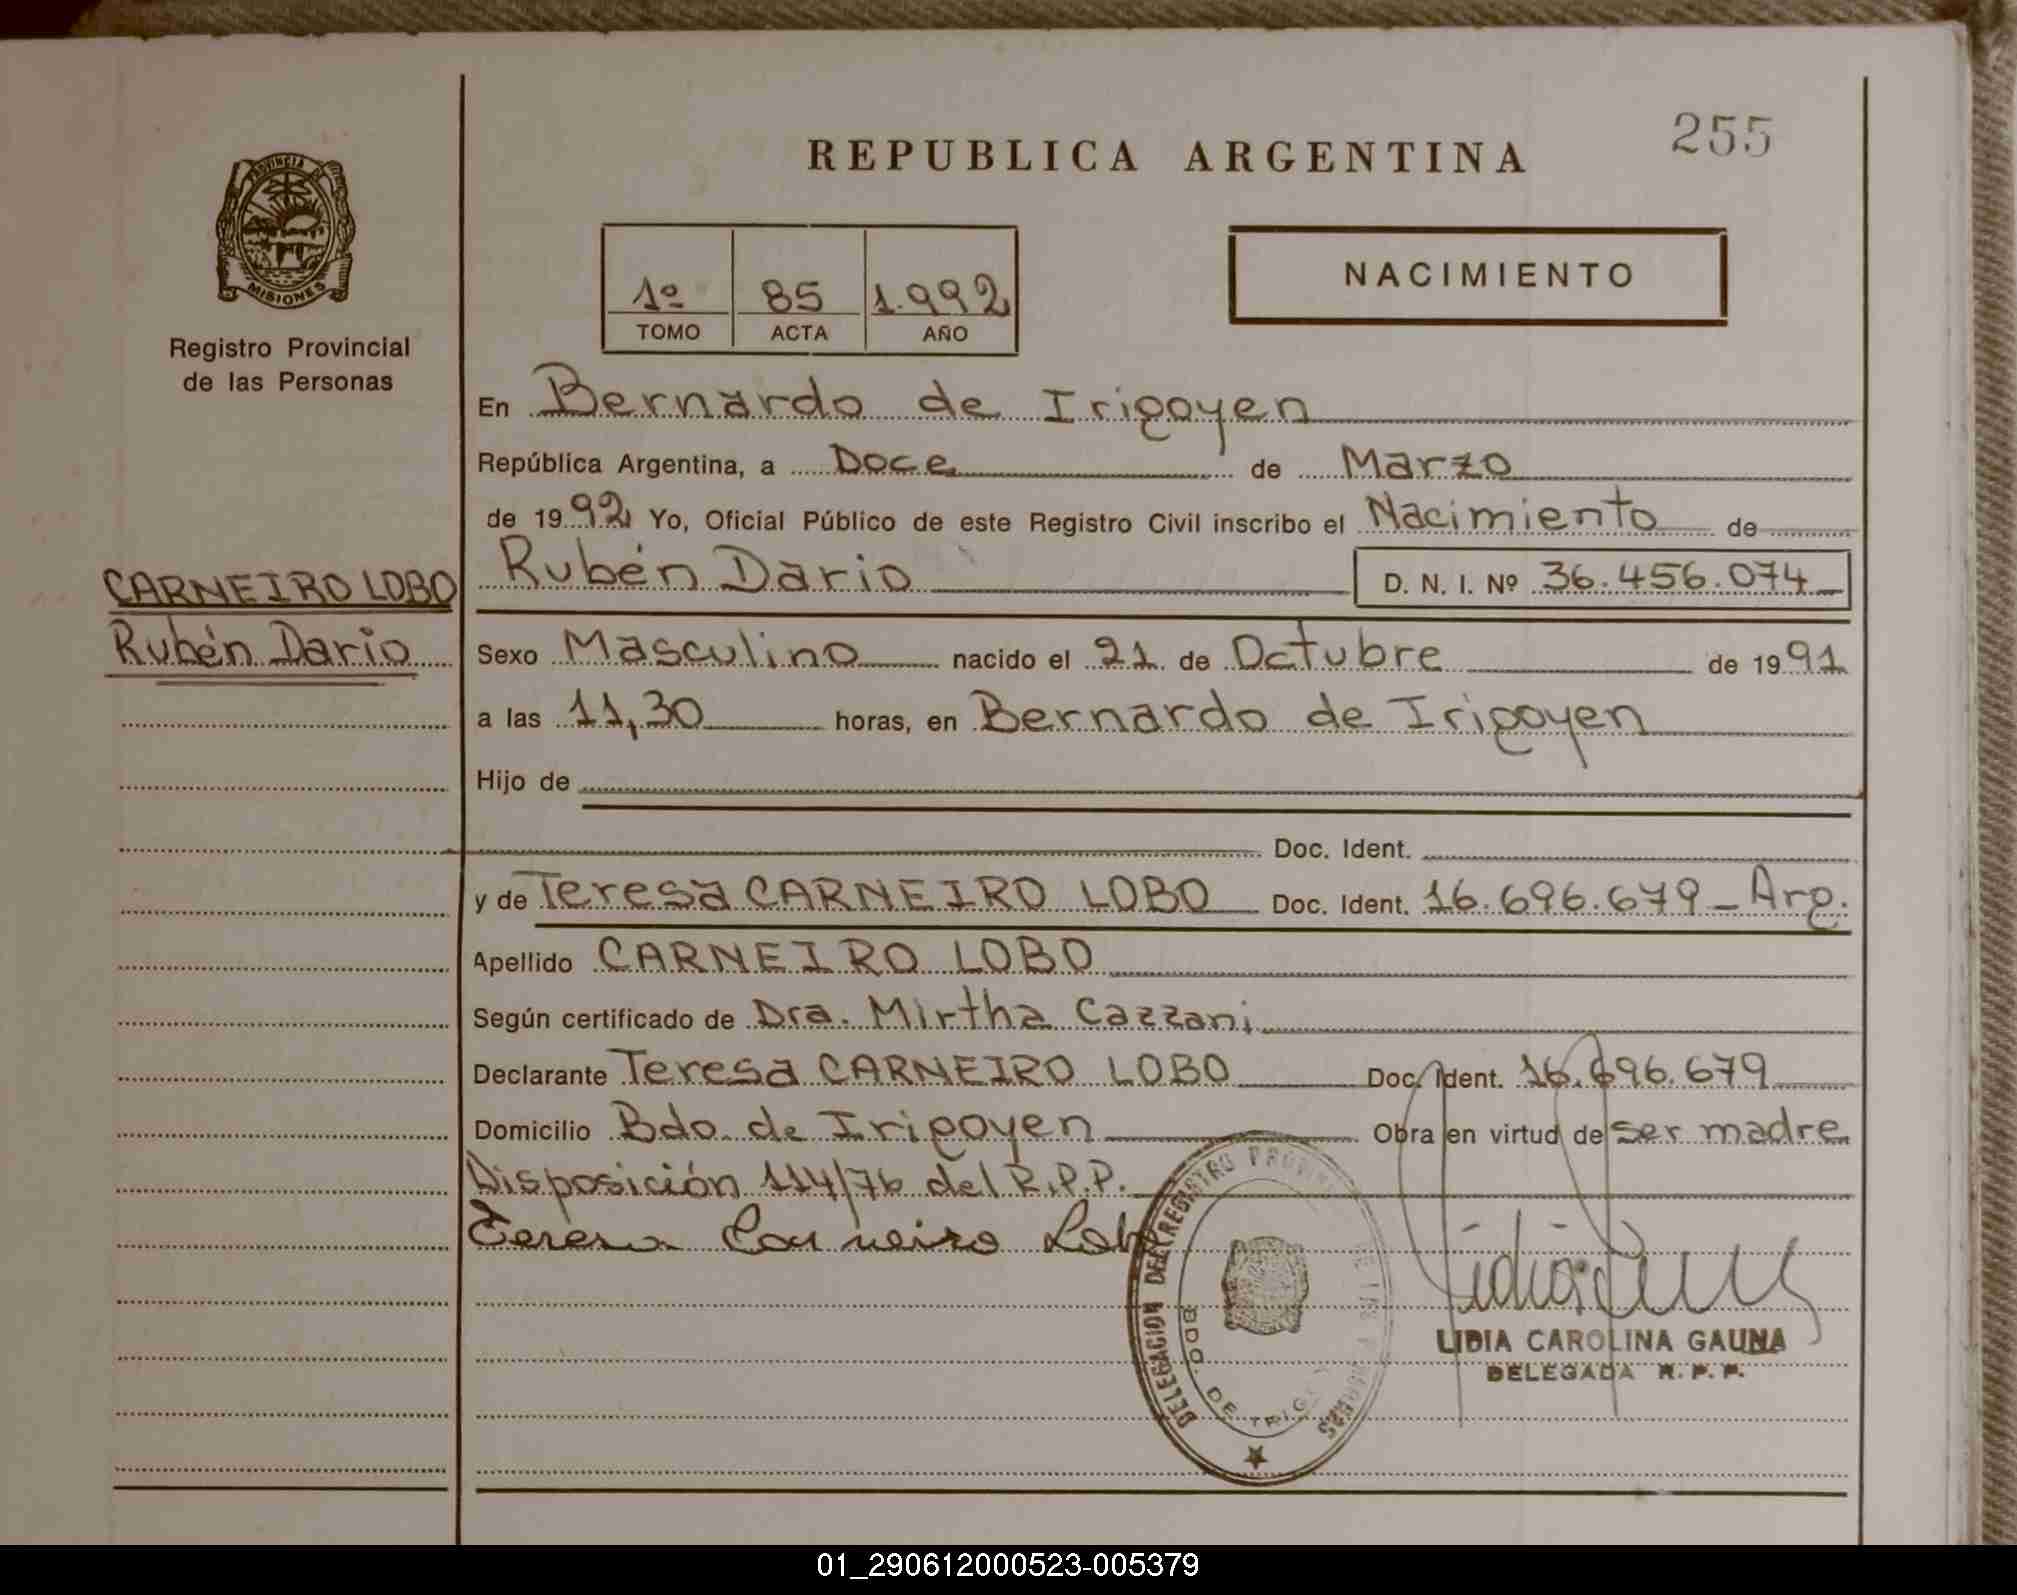 255
REPUBLICA ARGENTINA
PROVINCIA DE
MISIONES
Registro Provincial
de las Personas
1º 85 1.992
TOMO ACTA AÑO
NACIMIENTO
En Bernardo de Irigoyen
República Argentina, a Doce de Marzo
de 1992 Yo, Oficial Público de este Registro Civil inscribo el Nacimiento de
CARNEIRO LOBO
Rubén Dario
Rubén Dario D. N. I. Nº 36.456.074
Sexo Masculino nacido el 21 de Octubre de 1991
a las 11,30 horas, en Bernardo de Irigoyen
Hijo de
Doc. Ident.
y de Teresa CARNEIRO LOBO Doc. Ident. 16.696.679 - Arg.
Apellido CARNEIRO LOBO
Según certificado de Dra. Mirtha Cazzani
Declarante Teresa CARNEIRO LOBO Doc. Ident. 16.696.679
Domicilio Bdo. de Irigoyen Obra en virtud de ser madre
Disposición 114/76 del R.P.P.
Teresa Carneiro Lobo
DELEGACION DEL REGISTRO PROVINCIAL DE LAS PERSONAS
BDO. DE IRIGOYEN
LIDIA CAROLINA GAUNA
DELEGADA R. P. P.
01_290612000523-005379